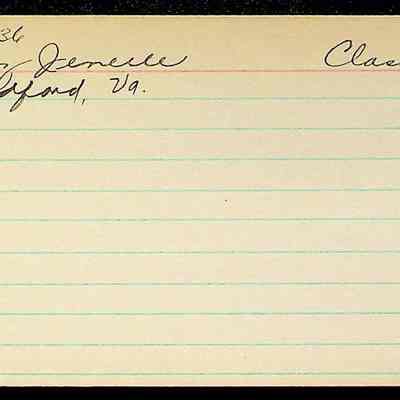 36
Jenelle Clas
dford, Va.